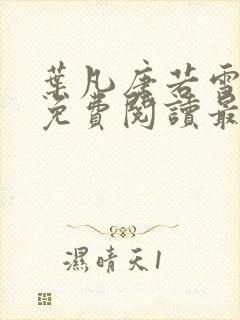 葉凡唐若雪
免費閱讀最
濕晴天1